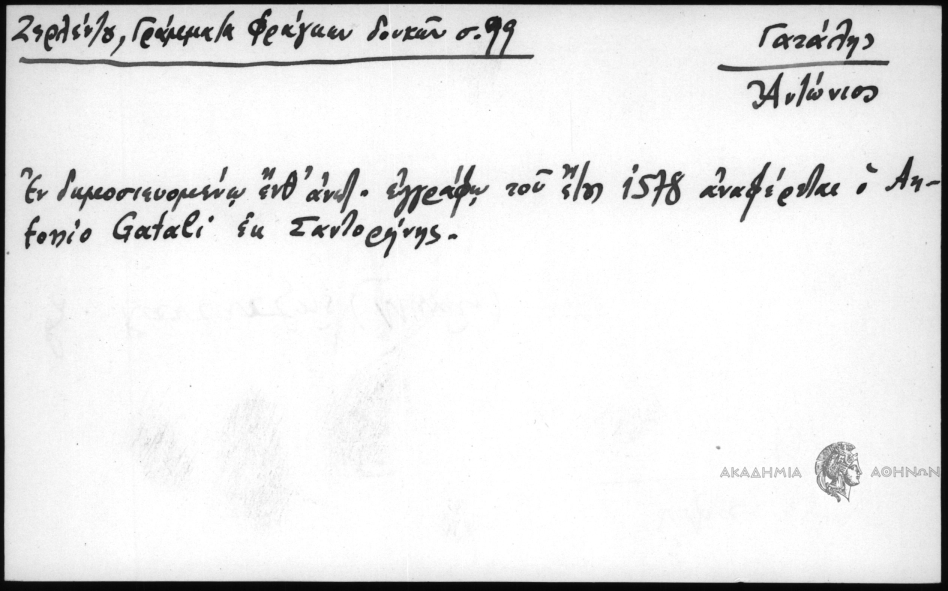 Ζερλέντου, Γράμματα Φράγκων δουκῶν σ. 99
Γατάλης
Ἀντώνιος
Ἐν δημοσιευομένῳ ἔνθ' ἀνωτ. ἐγγράφῳ τοῦ ἔτους 1578 ἀναφέρεται ὁ An-
tonio Gatali ἐκ Σαντορήνης.
ΑΚΑΔΗΜΙΑ ΑΘΗΝΩΝ